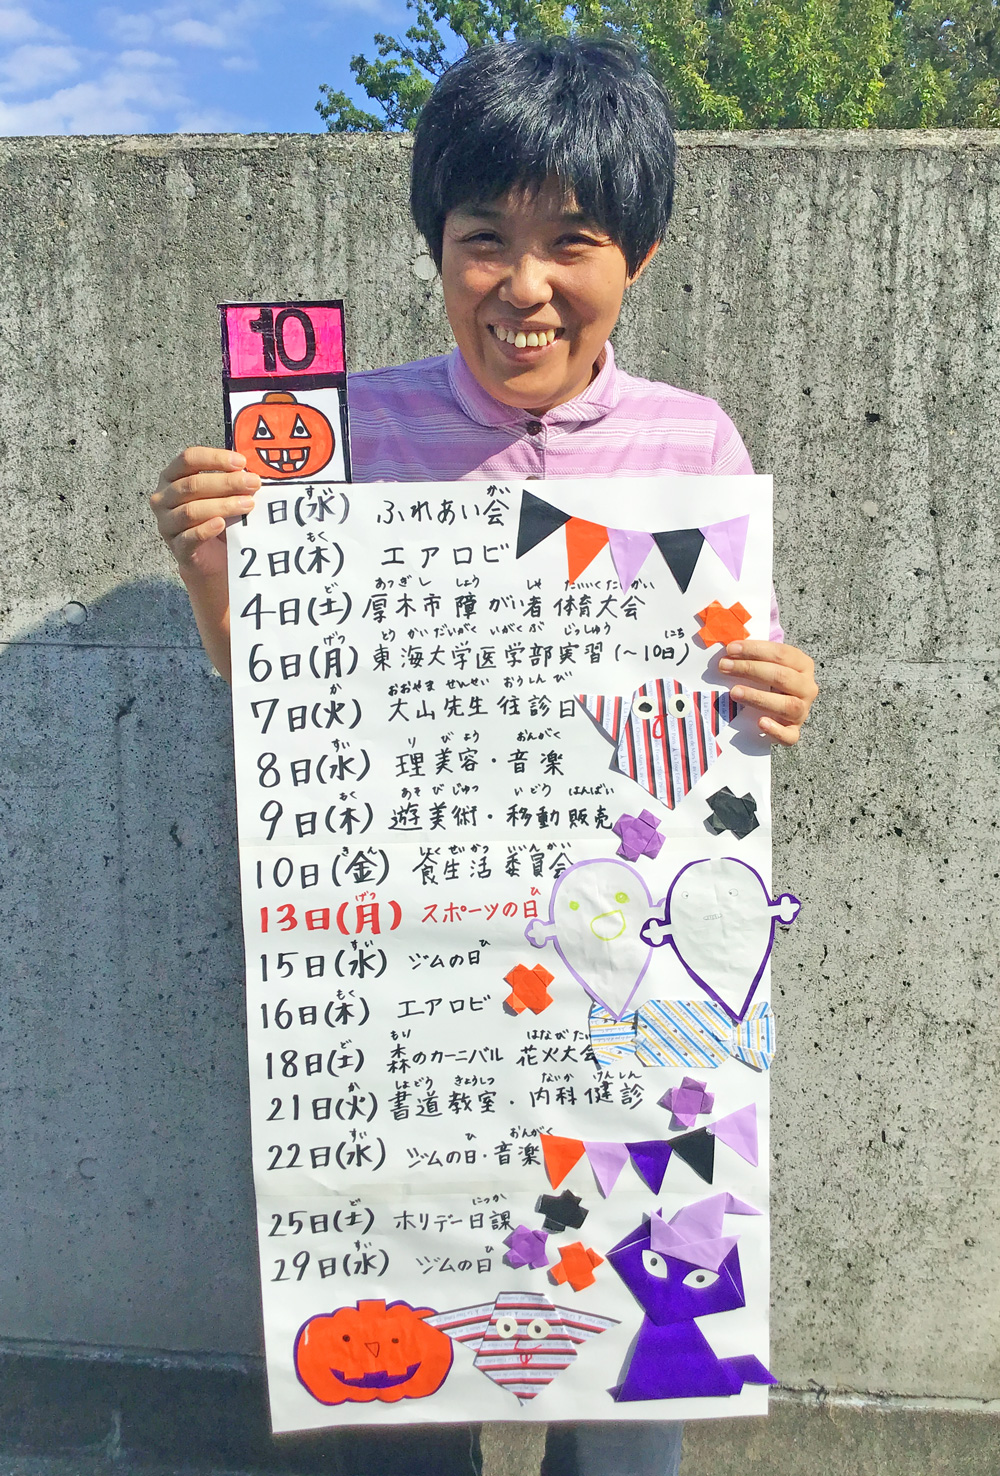 10
1日(水) ふれあい会
2日(木) エアロビ
4日(土) 厚木市障がい者体育大会
6日(月) 東海大学医学部実習(～10日)
7日(火) 大山先生往診日
8日(水) 理美容・音楽
9日(木) 遊美術・移動販売
10日(金) 食生活委員会
13日(月) スポーツの日
15日(水) ジムの日
16日(木) エアロビ
18日(土) 森のカーニバル 花火大会
21日(火) 書道教室・内科健診
22日(水) ジムの日・音楽
25日(土) ホリデー日課
29日(水) ジムの日